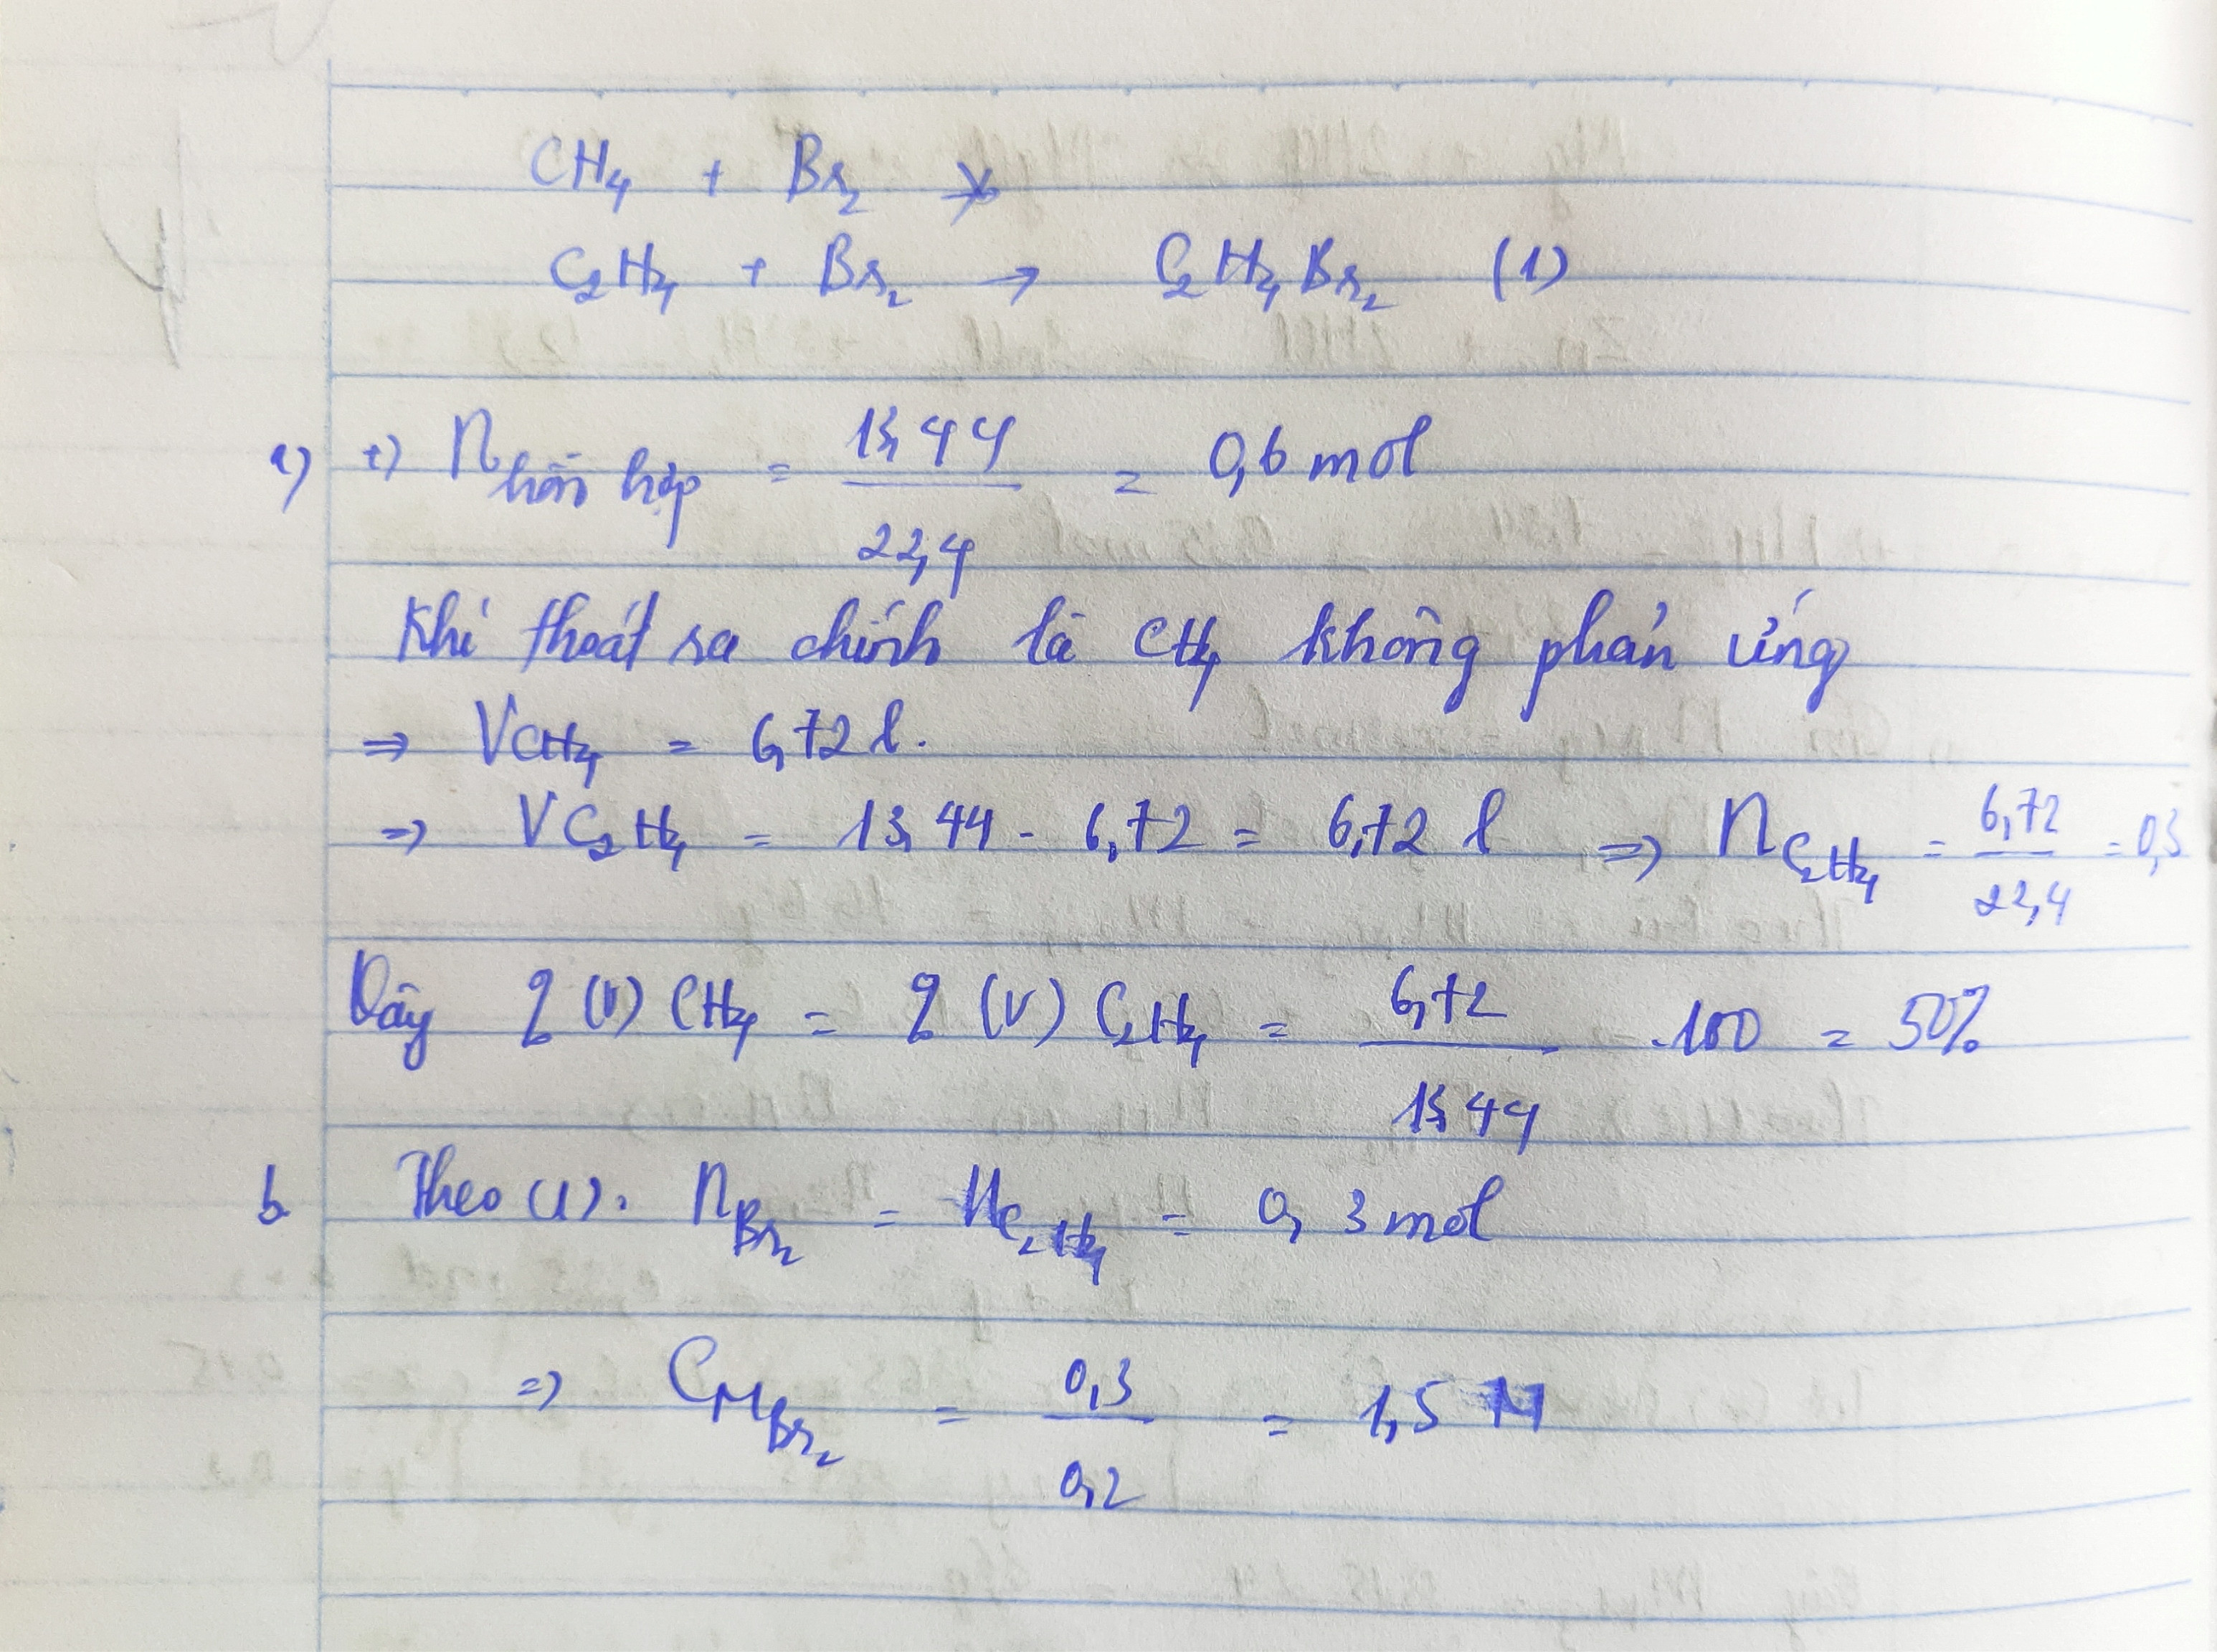 CH₄ + Br₂ ↛
C₂H₄ + Br₂ → C₂H₄Br₂ (1)
a) +) n hỗn hợp = 13,44 / 22,4 = 0,6 mol
Khí thoát ra chính là CH₄ không phản ứng
⇒ VCH₄ = 6,72 l.
⇒ VC₂H₄ = 13,44 - 6,72 = 6,72 l ⇒ nC₂H₄ = 6,72 / 22,4 = 0,3
Vậy % (V) CH₄ = % (V) C₂H₄ = 6,72 / 13,44 .100 = 50%
b Theo (1): nBr₂ = nC₂H₄ = 0,3 mol
⇒ CM Br₂ = 0,3 / 0,2 = 1,5 M